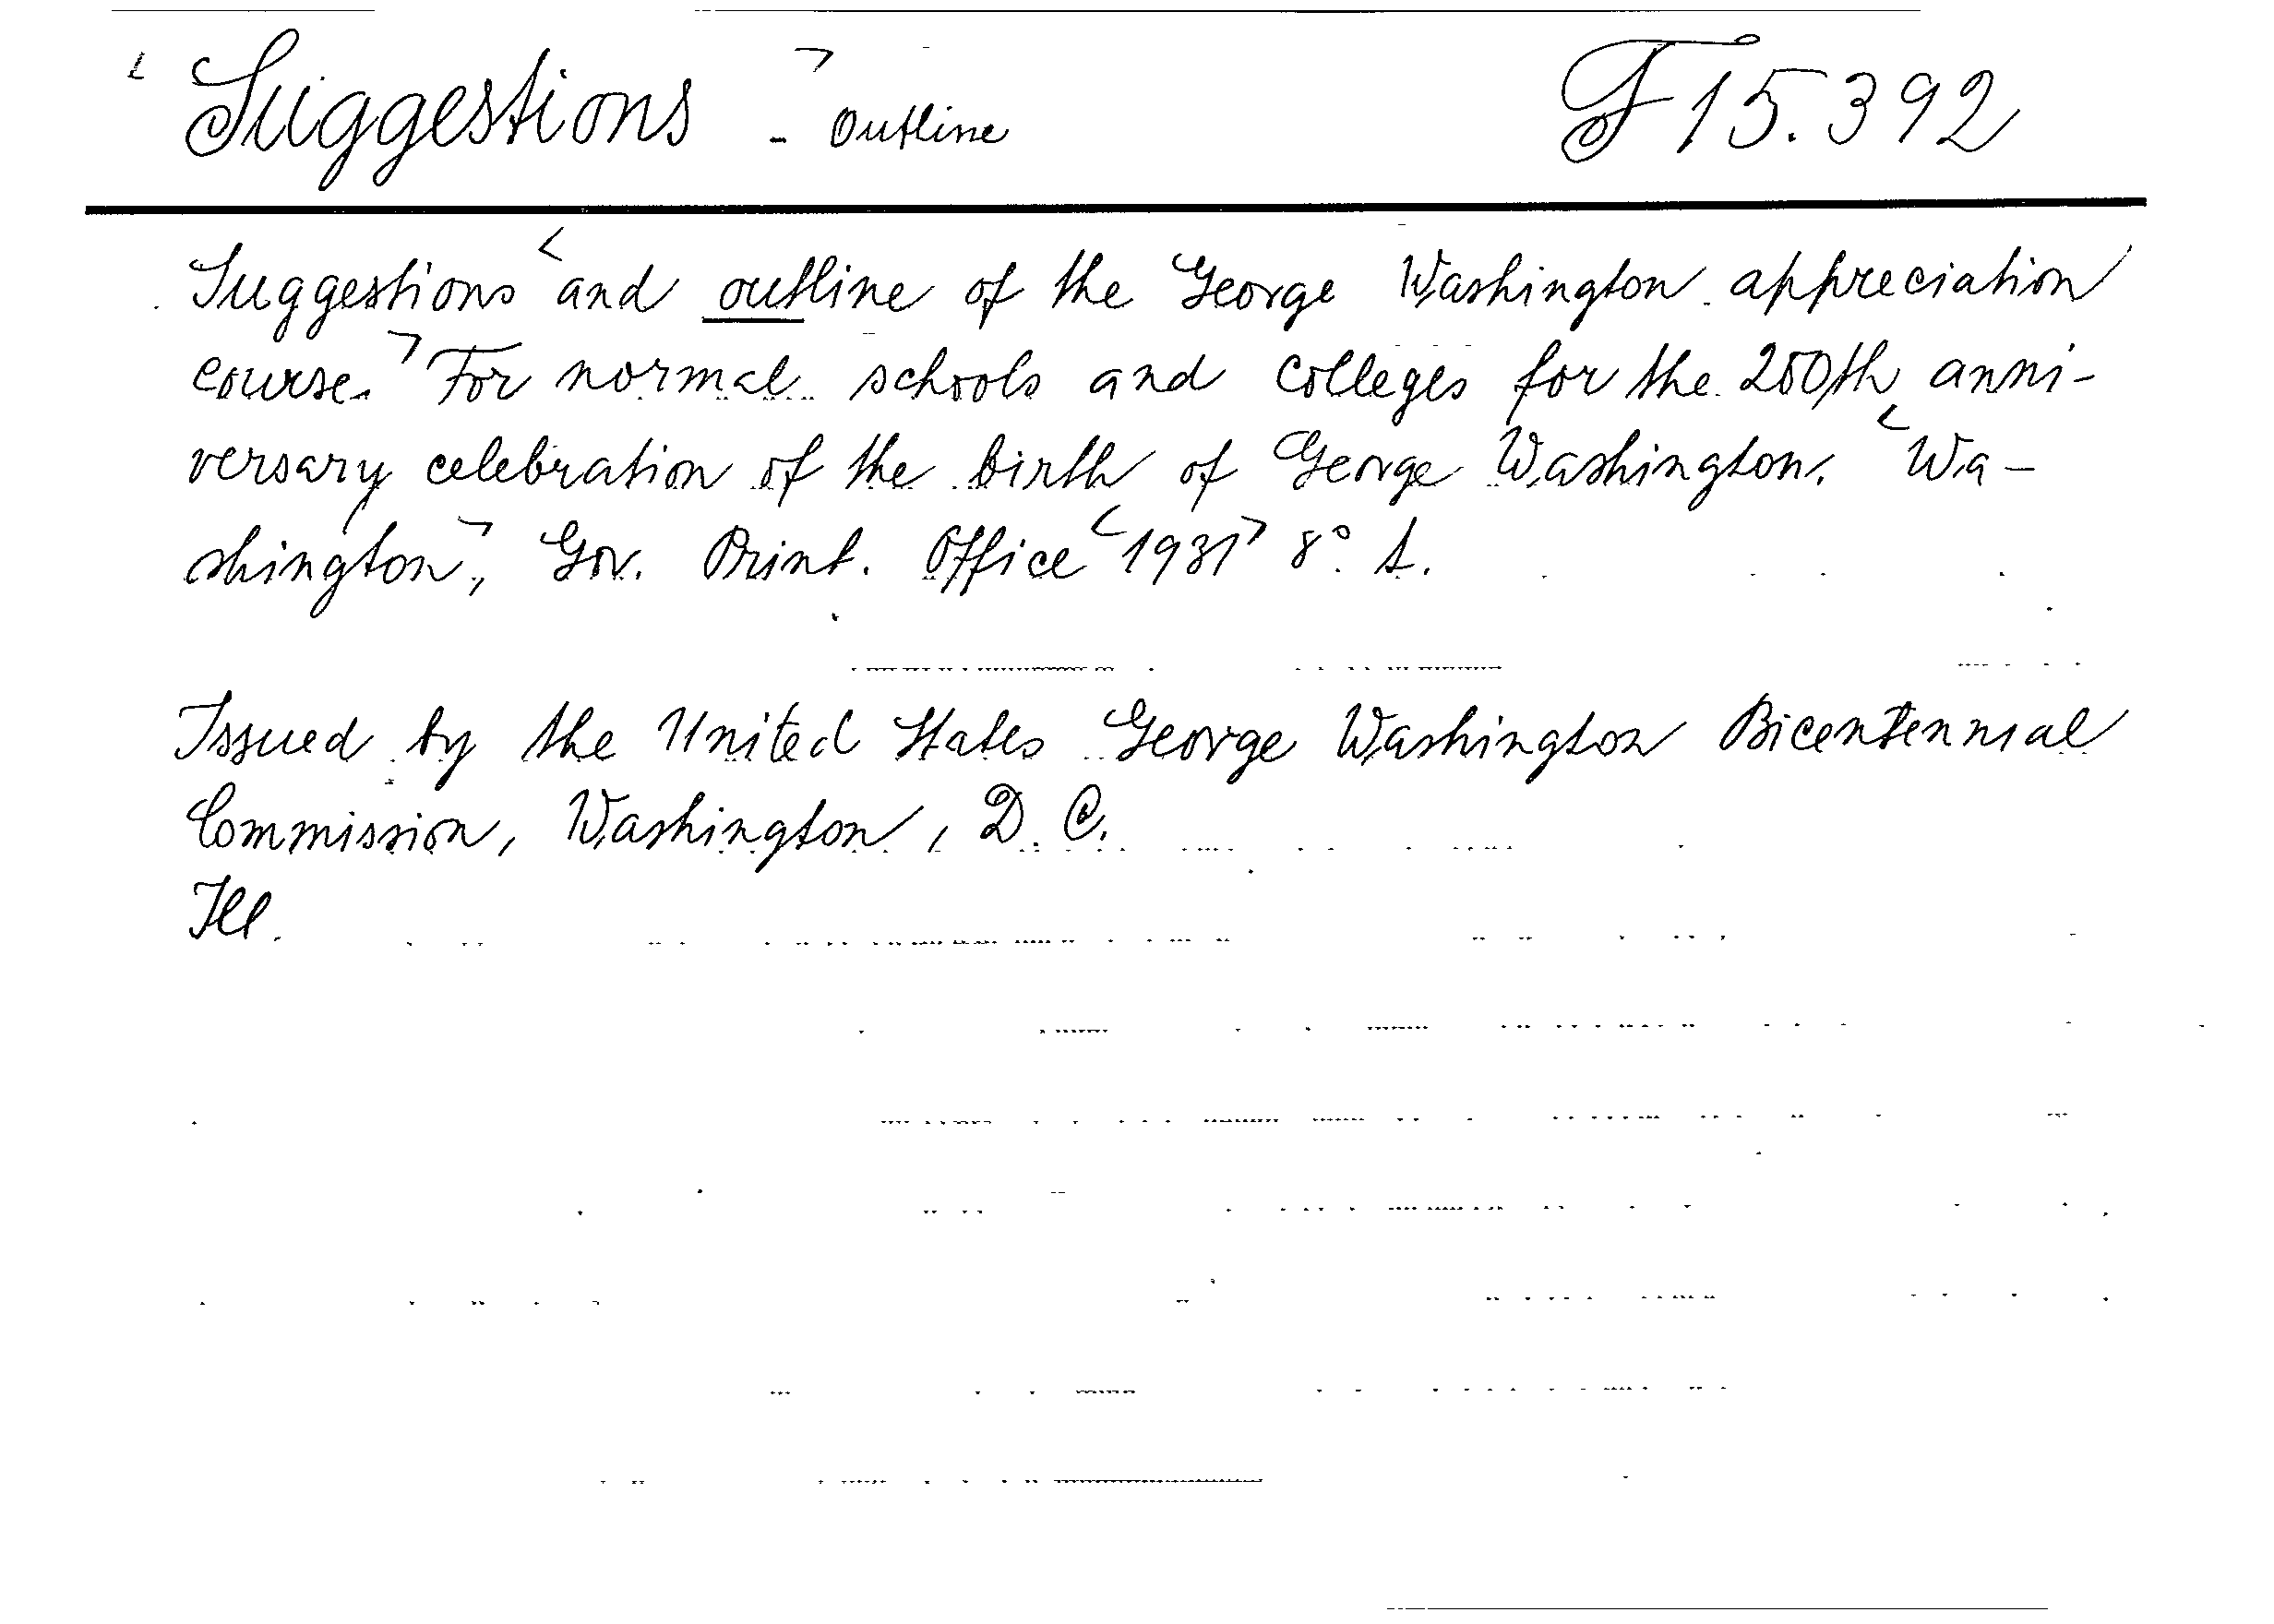 <Suggestions> - Outline F 15.392
Suggestions <and outline of the George Washington appreciation
course.> For normal schools and colleges for the 250th anni-
versary celebration of the birth of George Washington. <Wa-
shington>, Gov. Print. Office <1931> 8°. A.
Issued by the United States George Washington Bicentennial
Commission, Washington, D. C.
Ill.